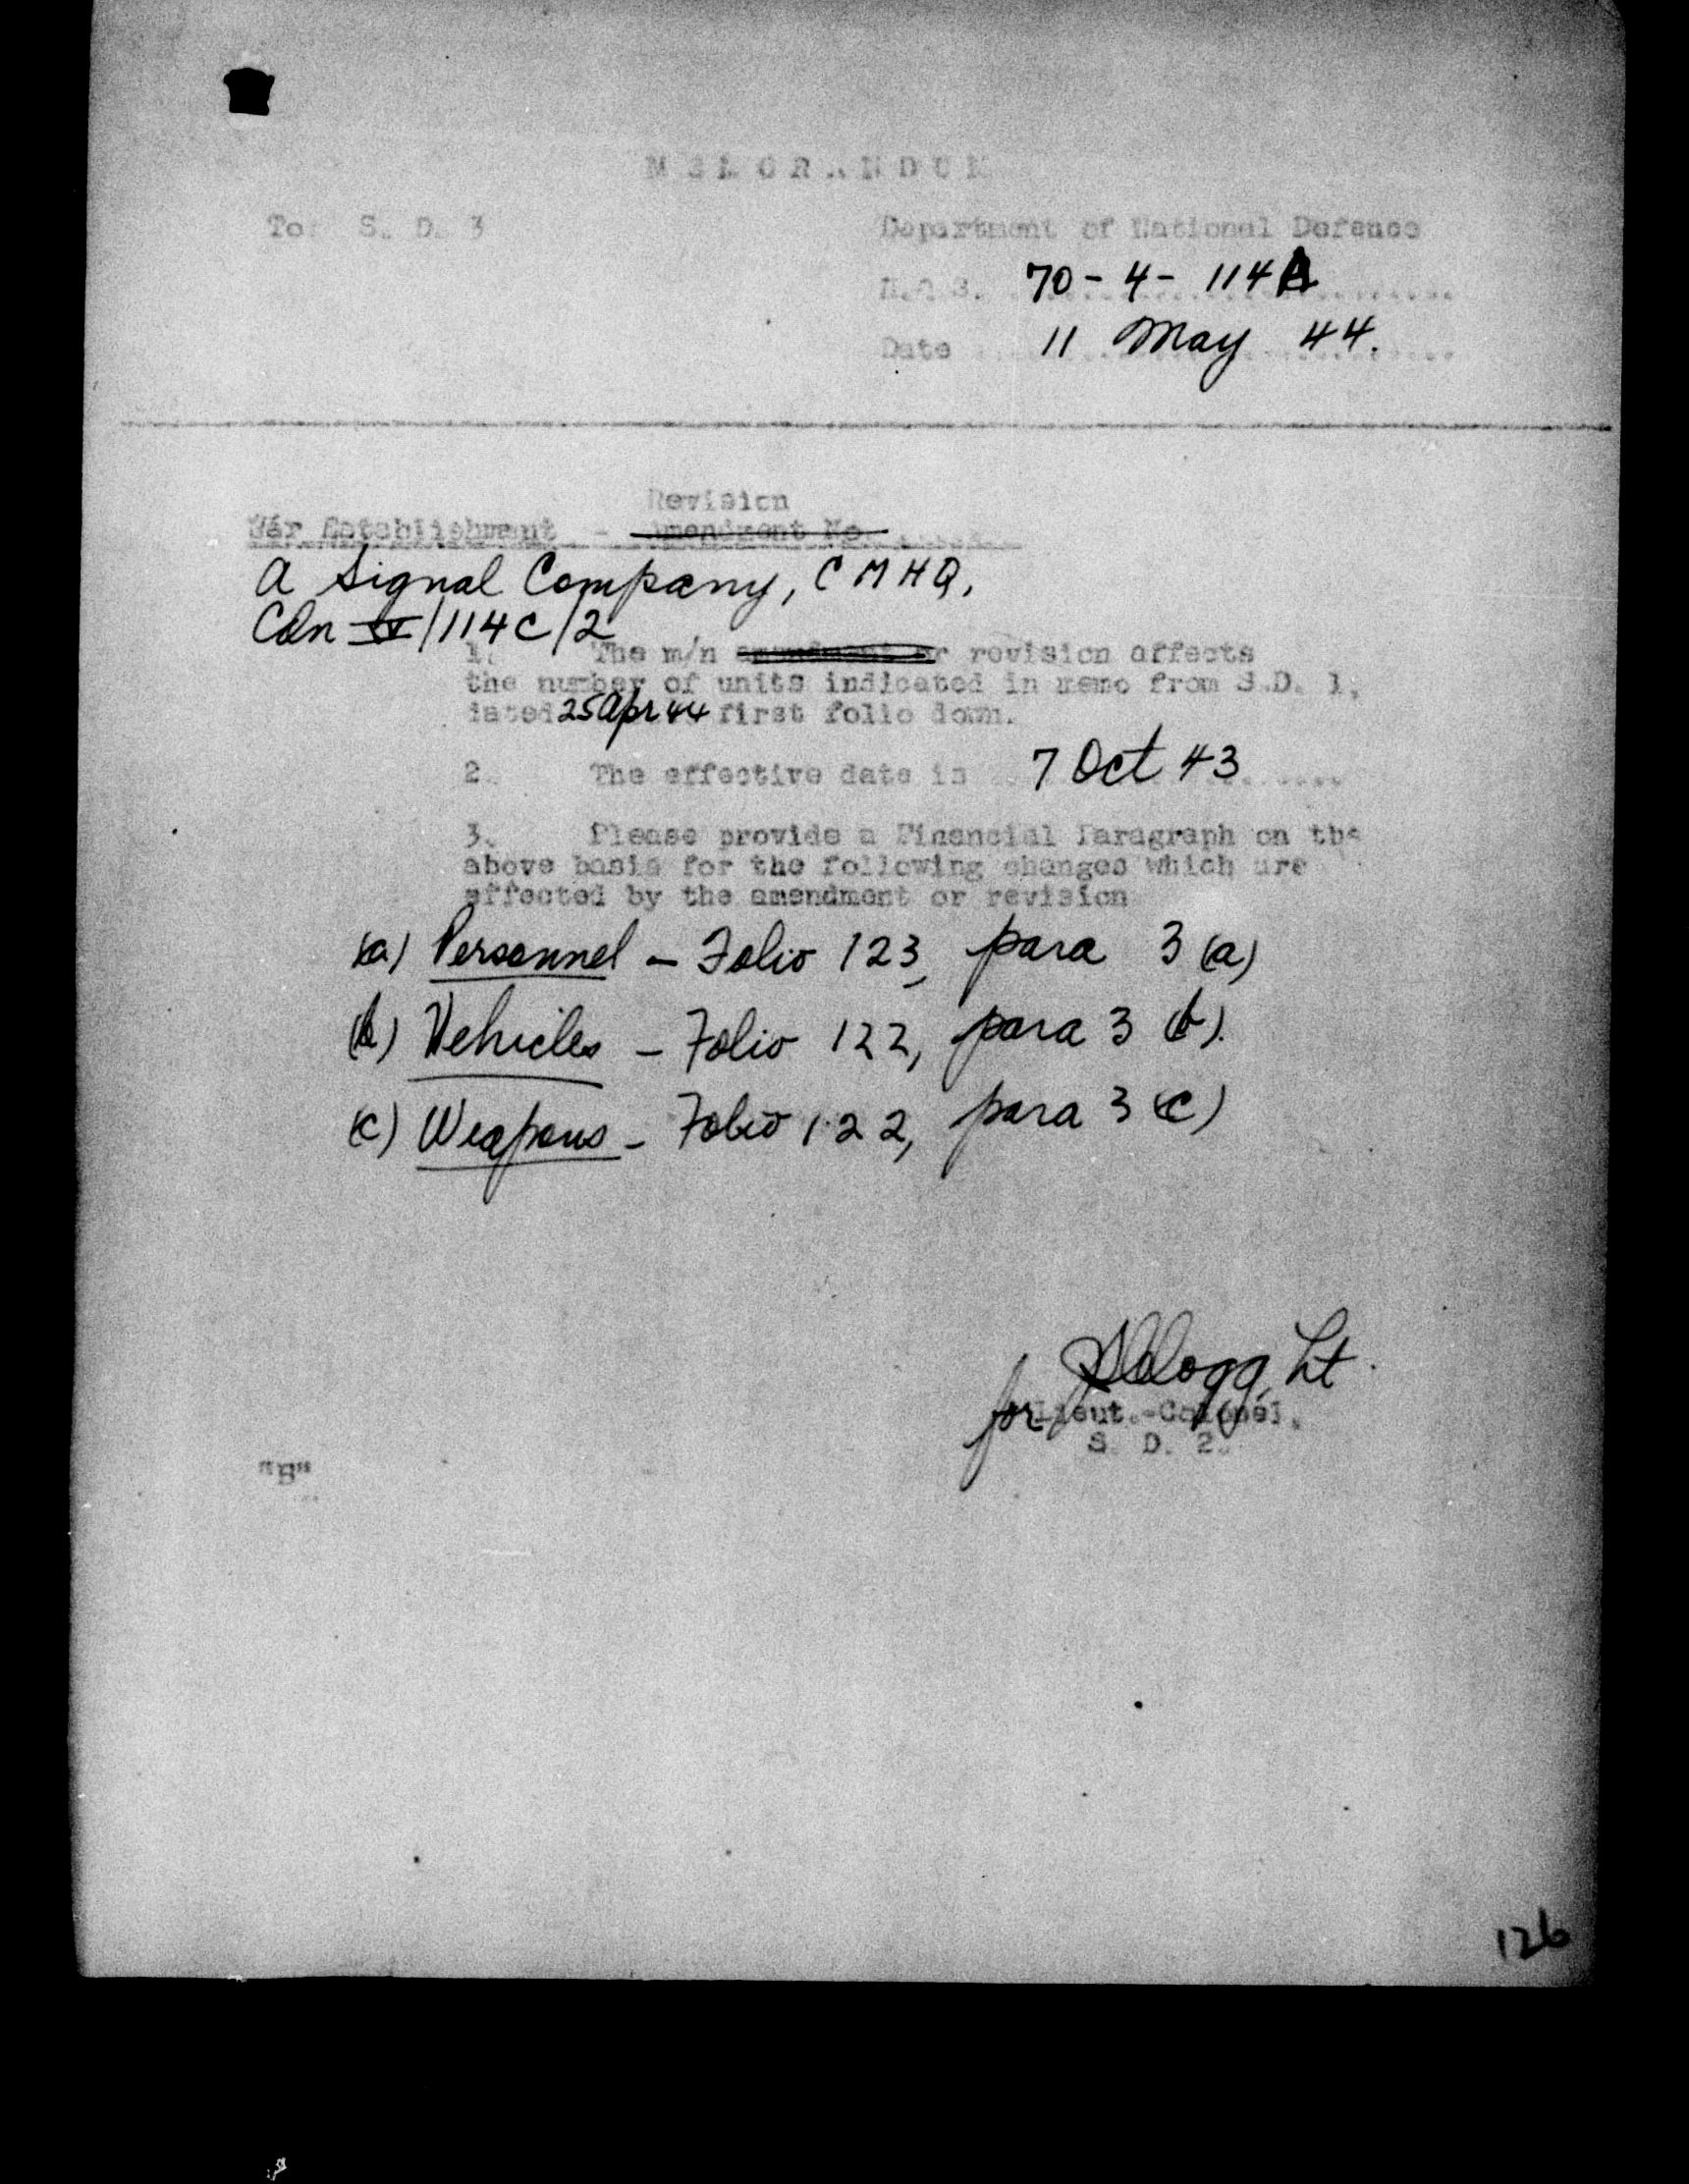 MEMORANDUM
To: S. D. 3
Department of National Defence
H.Q.S. 70-4-114A
Date 11 May 44.
Revision
War Establishment - Amendment No.
A Signal Company, CMHQ,
Cdn IV/114C/2
1. The m/n amendment or revision affects
the number of units indicated in memo from S.D. 1,
dated 25 Apr 44 first folio down.
2. The effective date is 7 Oct 43
3. Please provide a Financial Paragraph on the
above basis for the following changes which are
effected by the amendment or revision
(a) Personnel - Folio 123, para 3 (a)
(b) Vehicles - Folio 122, para 3 (b).
(c) Weapons - Folio 122, para 3 (c)
Lt.
for Lieut.-Colonel,
S. D. 2.
"B"
126